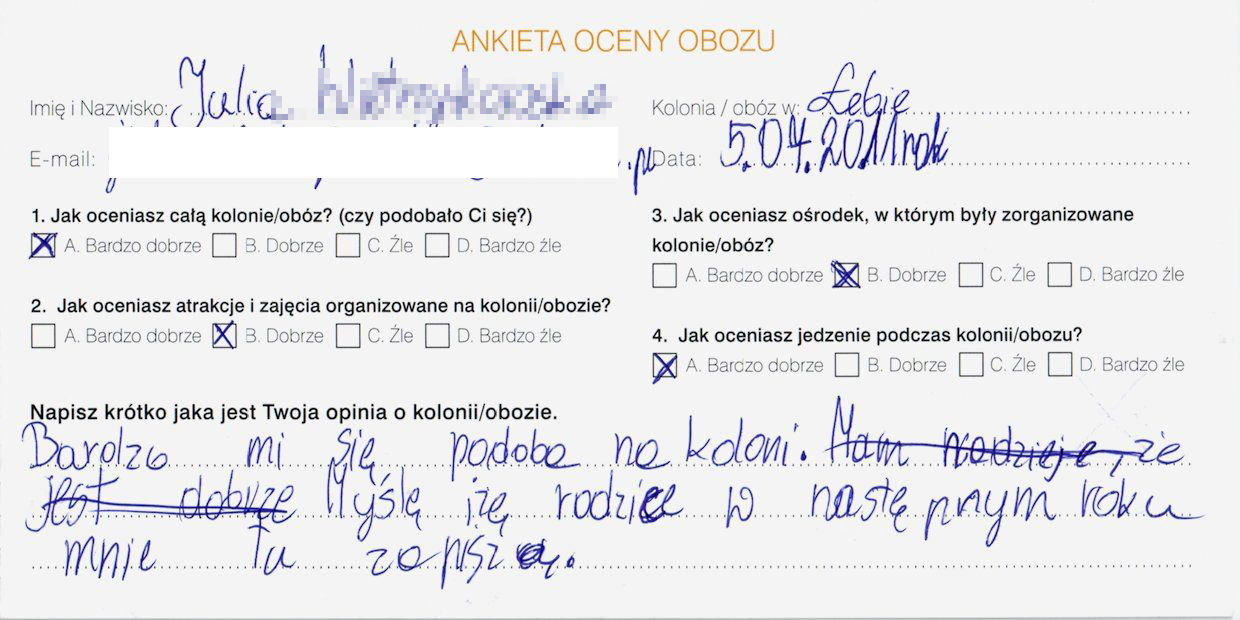 ANKIETA OCENY OBOZU
Imię i Nazwisko: Julia
Kolonia / obóz w: Łebie
E-mail: .pl
Data: 5.07.2011 rok
1. Jak oceniasz całą kolonie/obóz? (czy podobało Ci się?)
A. Bardzo dobrze B. Dobrze C. Źle D. Bardzo źle
2. Jak oceniasz atrakcje i zajęcia organizowane na kolonii/obozie?
A. Bardzo dobrze B. Dobrze C. Źle D. Bardzo źle
3. Jak oceniasz ośrodek, w którym były zorganizowane
kolonie/obóz?
A. Bardzo dobrze B. Dobrze C. Źle D. Bardzo źle
4. Jak oceniasz jedzenie podczas kolonii/obozu?
A. Bardzo dobrze B. Dobrze C. Źle D. Bardzo źle
Napisz krótko jaka jest Twoja opinia o kolonii/obozie.
Bardzo mi się podoba na koloni. Mam nadzieje, że
jest dobrze Myślę iżę rodzice w następnym roku
mnie tu zapiszą.